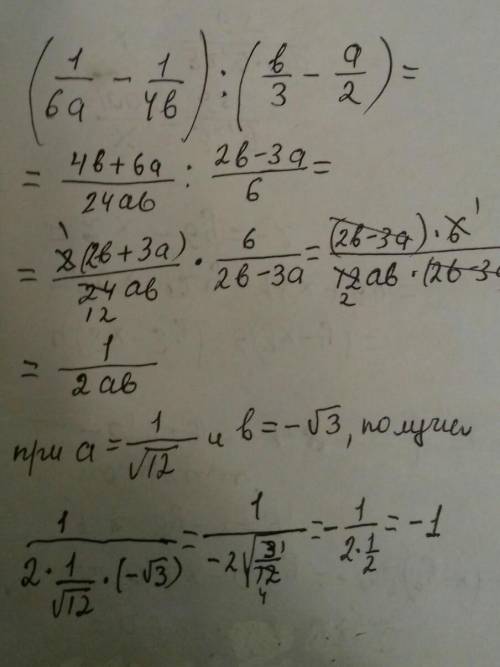 (1/6a - 1/4b) : (b/3 - a/2) =
= 4b+6a/24ab : 2b-3a/6 =
= 2(2b+3a)/24ab · 6/2b-3a = (2b-3a)·6/12ab·(2b-3a
1 12 1 2
= 1/2ab
при a = 1/√12 и b = -√3, получим
1/2·1/√12·(-√3) = 1/-2√3/12 = -1/2·1/2 = -1
1 4